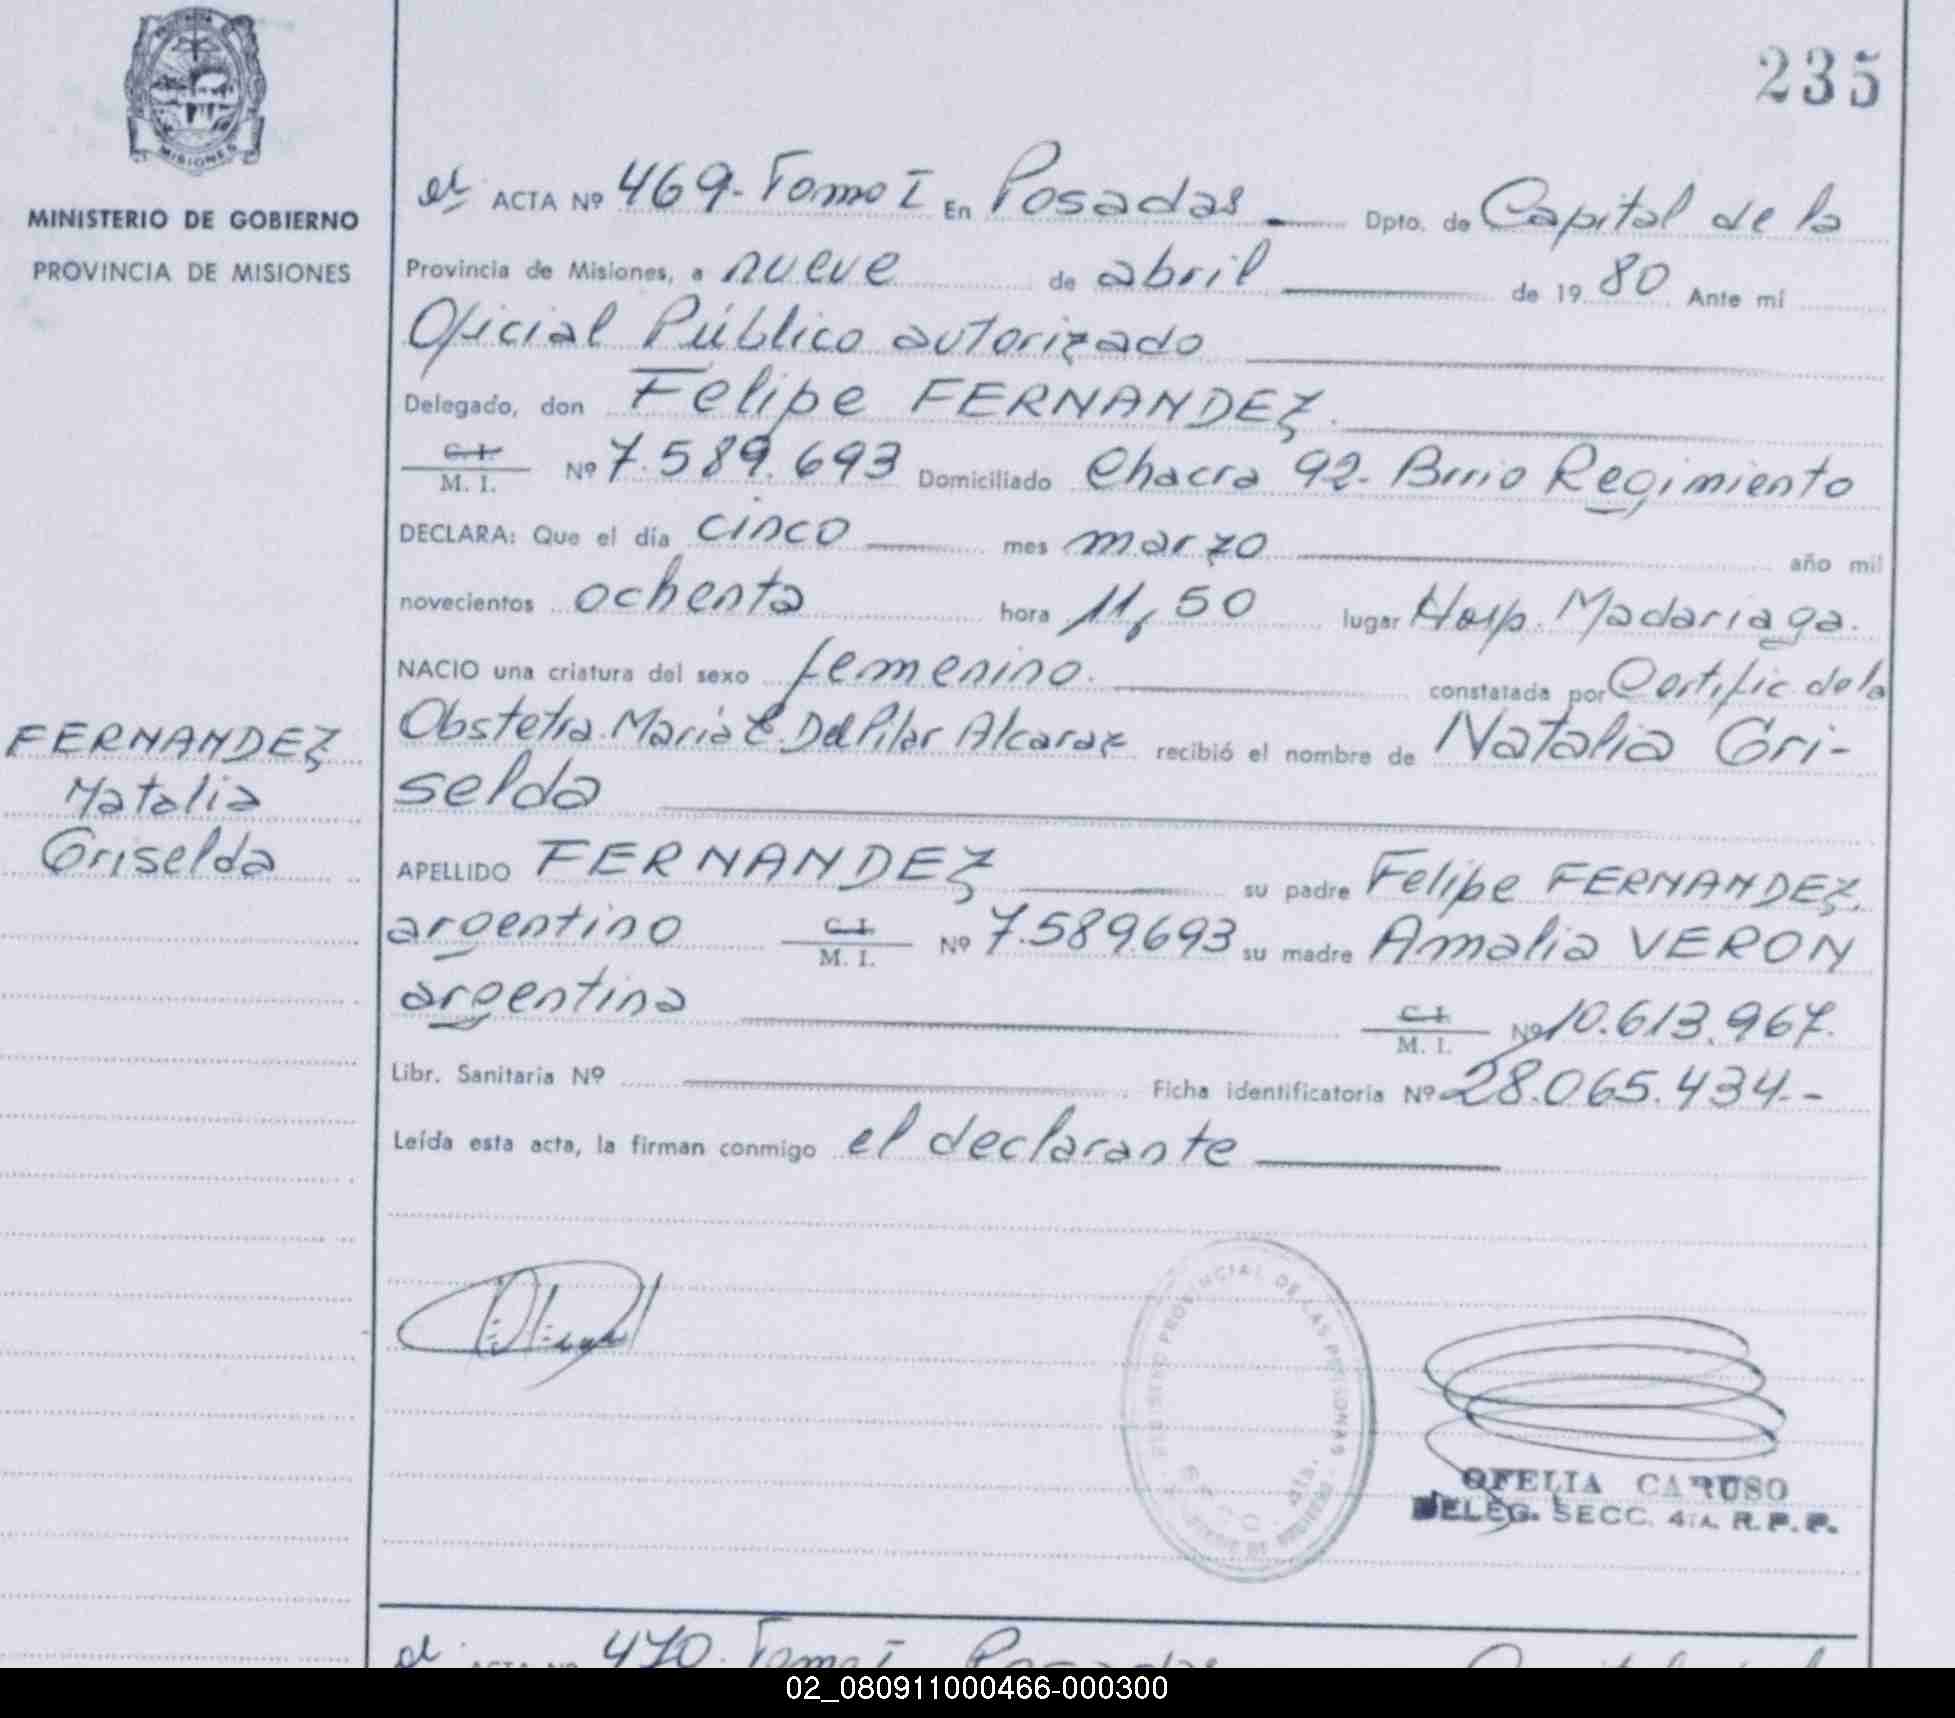 235
MISIONES
MINISTERIO DE GOBIERNO
PROVINCIA DE MISIONES
FERNANDEZ
Natalia
Griselda
ACTA Nº 469- Tomo I En Posadas Dpto. de Capital de la
Provincia de Misiones, a nueve de abril de 19 80 Ante mí
Oficial Público autorizado
Delegado, don Felipe FERNANDEZ.
C. I.
M. I. Nº 7.589.693 Domiciliado Chacra 92- Brrio Regimiento
DECLARA: Que el día cinco mes marzo año mil
novecientos ochenta hora 11,50 lugar Hosp. Madariaga.
NACIO una criatura del sexo femenino. constatada por Certific de la
Obstetra. Maria E. Del Pilar Alcaraz recibió el nombre de Natalia Gri-
selda
APELLIDO FERNANDEZ su padre Felipe FERNANDEZ.
argentino C. I. M. I. Nº 7.589.693 su madre Amalia VERON
argentina C. I. M. I. Nº 10.613.967.
Libr. Sanitaria Nº Ficha identificatoria Nº 28.065.434.-
Leída esta acta, la firman conmigo el declarante
REGISTRO PROVINCIAL DE LAS PERSONAS
OFELIA CARUSO
DELEG. SECC. 4TA. R.P.P.
ACTA Nº 470. Tomo I Posadas
02_080911000466-000300